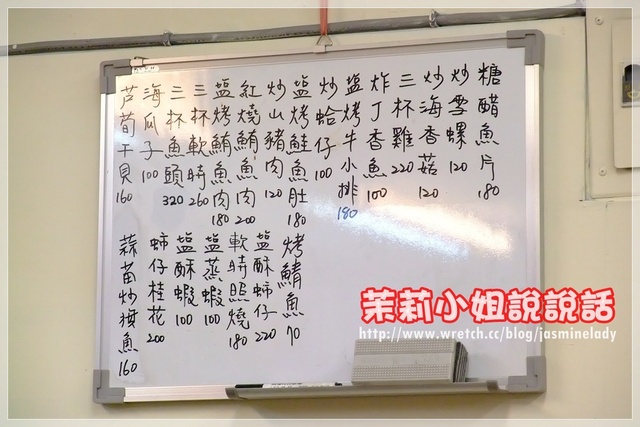 糖醋魚片 180
炒雪螺 120
炒海香菇 120
三杯雞 220
炸丁香魚 100
鹽烤牛小排 180
炒蛤仔 100
塩烤鮭魚肚 180
炒山豬肉 120
紅燒鮪魚肉 200
塩烤鮪魚肉 180
三杯軟時 260
三杯魚頭 320
海瓜子 100
芦荀干貝 160
烤鯖魚 70
塩酥蚵仔 220
軟時照燒 180
塩蒸蝦 100
塩酥蝦 100
蚵仔桂花 200
蒜苗炒魚 160
茉莉小姐說說話
http://www.wretch.cc/blog/jasminelady